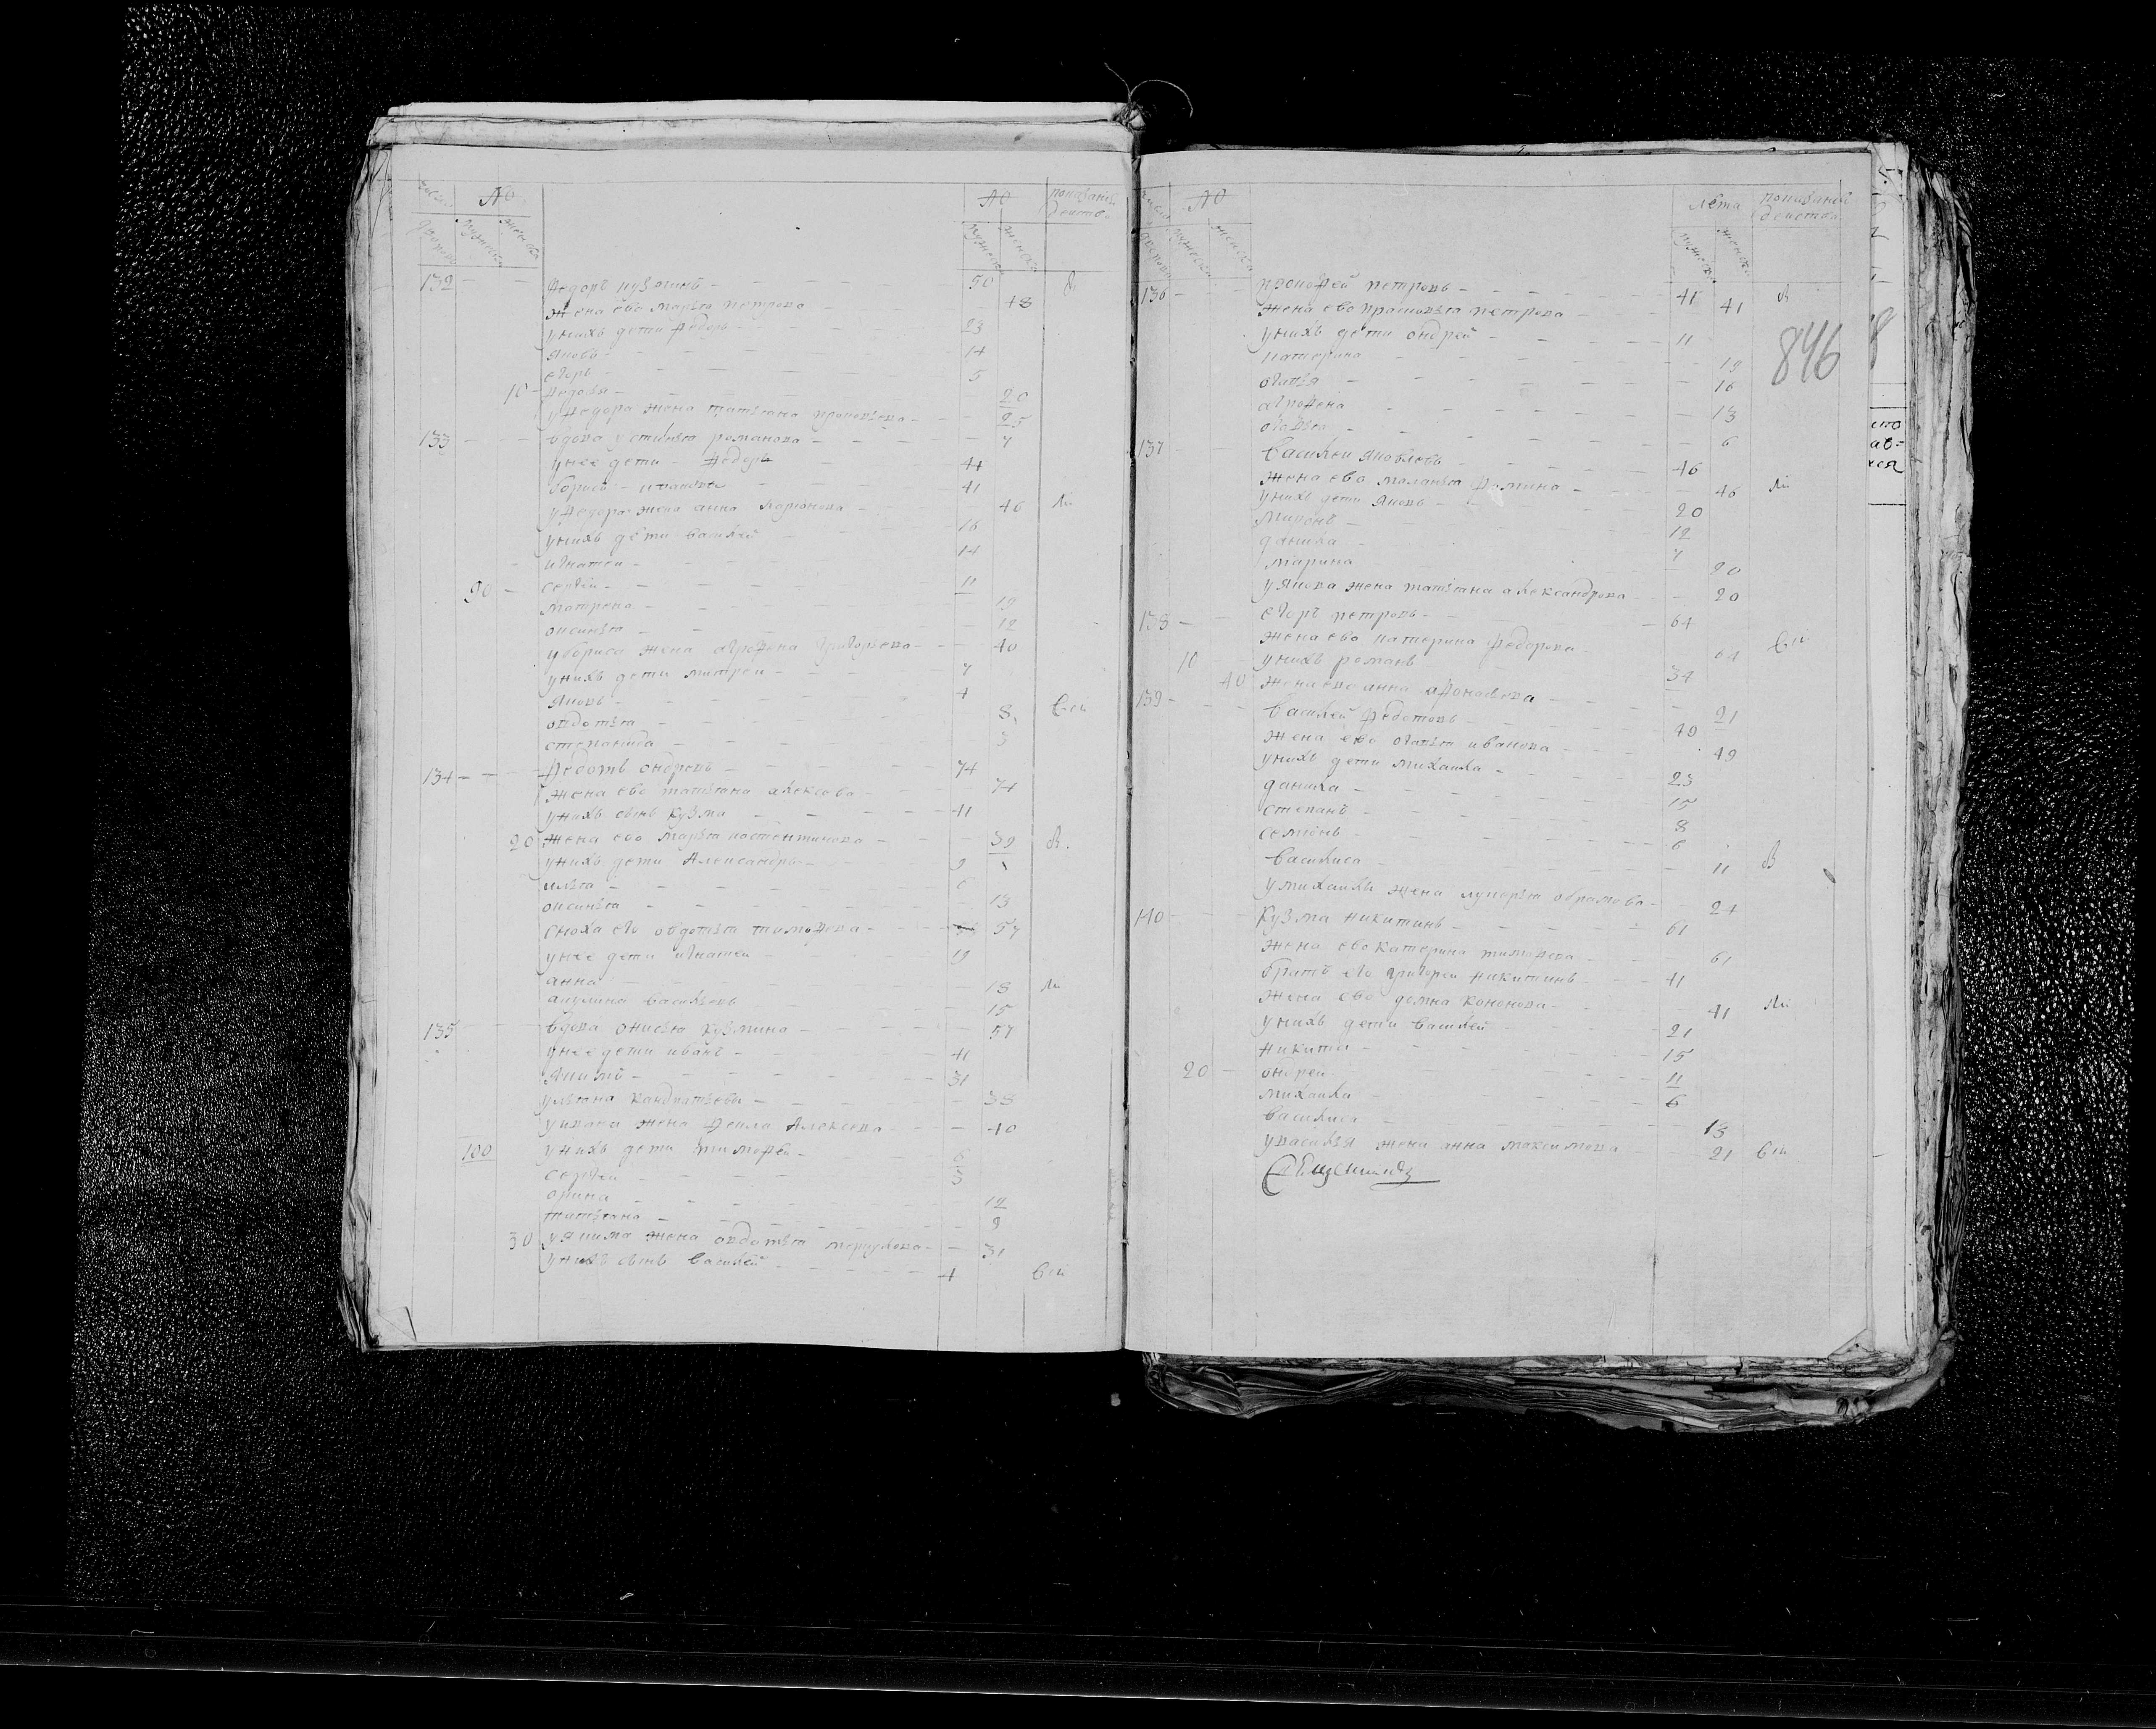 № № показание действа
мужеска женска мужеска женска
132 Федоръ кузминъ 50 В
Жена ево марья петрова 48
у нихъ дети Федоръ 23
яковъ 14
егоръ 5
10 Федосья 20
у Федора жена татьяна прокофьева 25
133 вдова устинья романова 7
у нее дети Федоръ 44
борисъ 41
у Федора жена анна ларионова 46 Ли
у нихъ дети василей 16
игнатеи 14
90 сергѣи 11
матрена 19
оксинья 12
у бориса жена аграфена григорьева 40
у нихъ дети митреи 7
яковъ 4
овдотья 8 Сви
степанида 3
134 Федотъ ондревъ 74
жена ево татьяна алексева 74
у нихъ сынъ кузма 41
20 жена ево марья костентинова 39 В
у нихъ дети Александръ 9
илья 6
оксинья 13
сноха его овдотья тимофева 57
у нее дети игнатеи 19
анна 18 Ли
акулина васильевы 15
135 вдова онисья кузмина 57
у нее дети иванъ 41
якимъ 31
ульяна кондратьевы 38
у ивана жена Фекла Алексева 40
100 у нихъ дети тимофеи 6
сергѣи 3
орина 12
татьяна 9
30 у якима жена овдотья 31
у нихъ сынъ василей 4 Сви
№ Лета показание действа
мужеска женска мужеска женска
846
136 прокофей петровъ 41 В
жена ево прасковья петрова 41
у нихъ дети ондрей 11
катерина 19
огапья 16
аграфена 13
огафья 6
137 василеи яковлевъ 46
жена ево маланья Фомина 46 Ли
у нихъ дети яковъ 20
миронъ 12
данила 7
марина 20
у якова жена татьяна александрова 20
138 егоръ петровъ 64
жена ево катерина федорова 64 Сви
10 у нихъ романъ 34
40 жена ево анна афонасьева 21
139 василей Федотовъ 49
жена ево огапья иванова 49
у нихъ дети михаила 23
данила 15
степанъ 8
семионъ 6
василиса 11 В
у михаилы жена лукерья обрамова 24
140 Кузма никитинъ 61
жена ево катерина тимофева 61
братъ его григореи никитинъ 41
жена ево домна кононова 41 Ли
у нихъ дети василей 21
никита 15
20 ондреи 11
михаила 6
василиса 13
у василья жена анна максимова 21 Сви